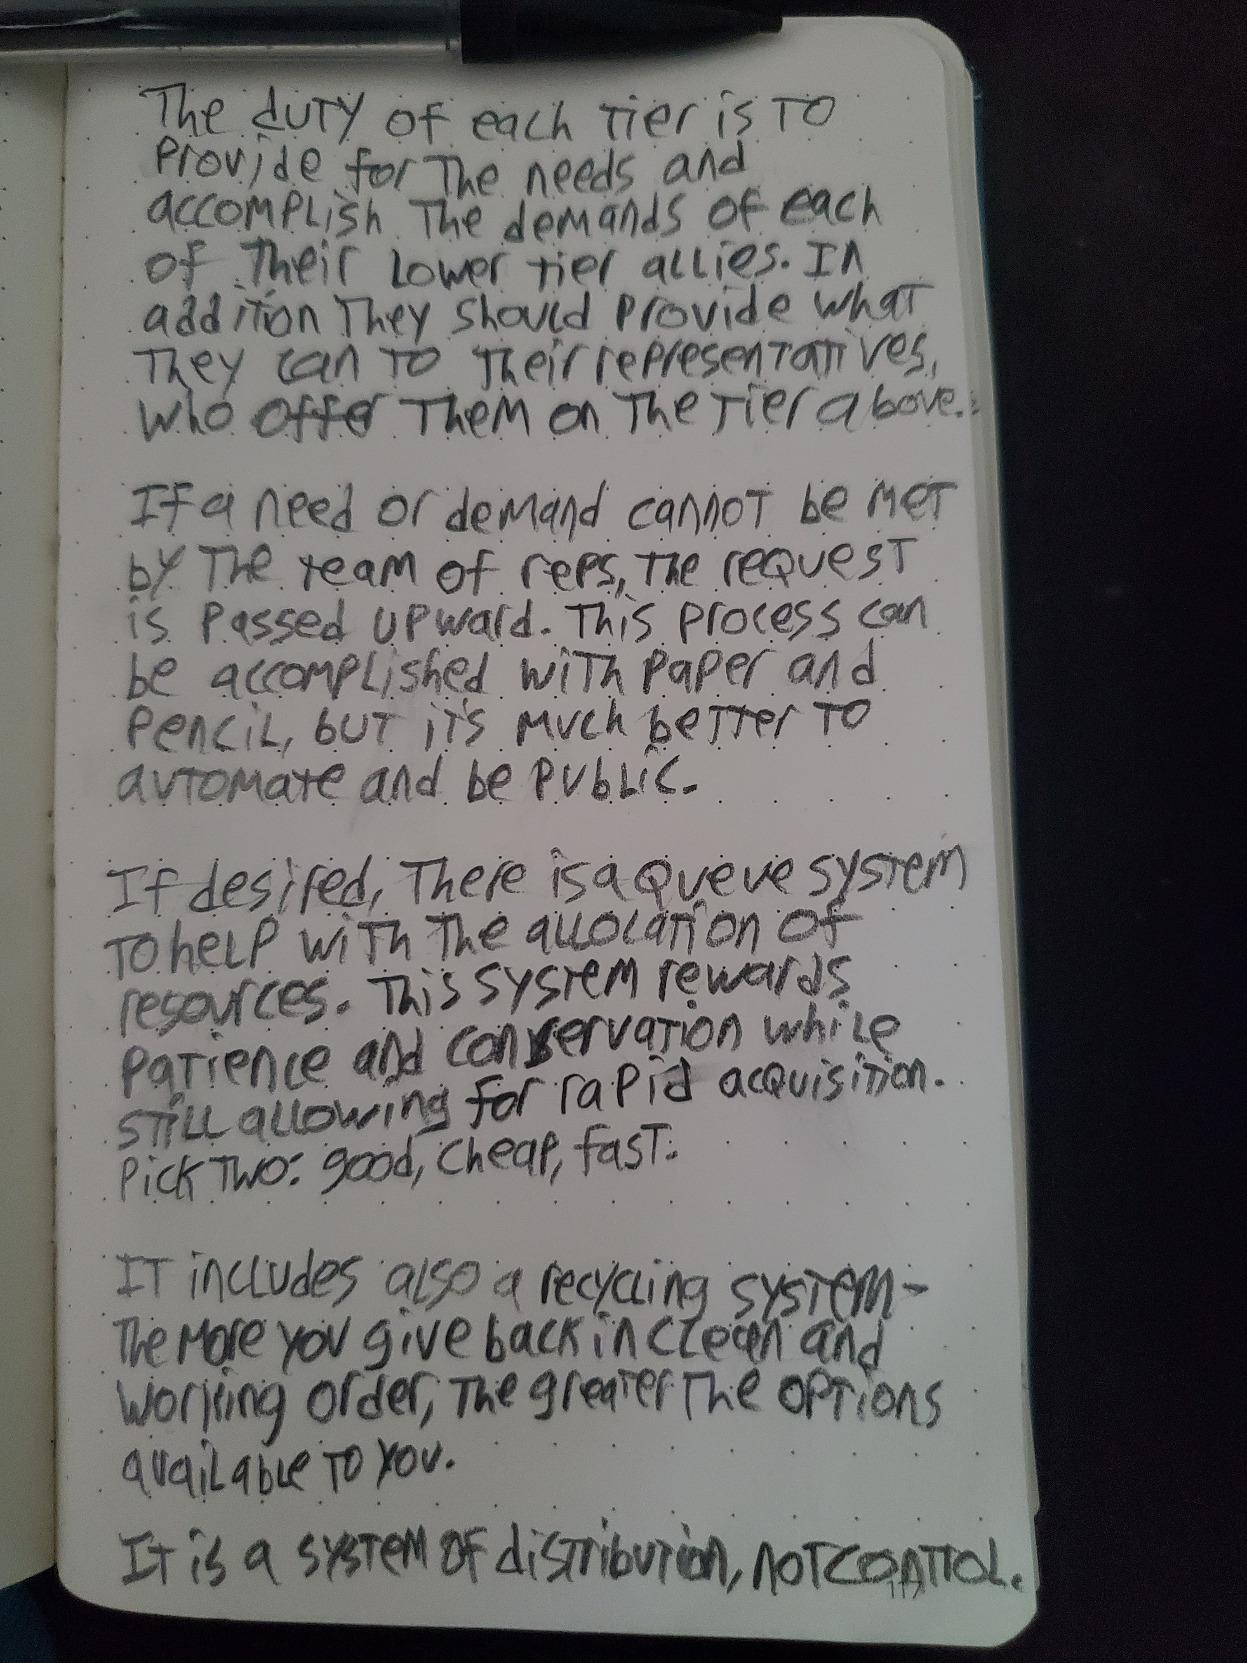 The duty of each tier is to
provide for the needs and
accomplish the demands of each
of their lower tier allies. In
addition they should provide what
they can to their representatives,
who offer them on the tier above.
If a need or demand cannot be met
by the team of reps, the request
is passed upward. This process can
be accomplished with paper and
pencil, but it's much better to
automate and be public.
If desired, there is a queue system
to help with the allocation of
resources. This system rewards
patience and conservation while
still allowing for rapid acquisition.
Pick two: good, cheap, fast.
It includes also a recycling system-
the more you give back in clean and
working order, the greater the options
available to you.
It is a system of distribution, not control.